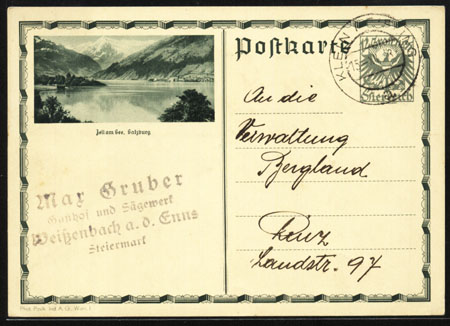 Postkarte
Zell am See, Salzburg.
Max Gruber
Gasthof und Sägewerk
Weißenbach a. d. Enns
Steiermark
An die
Verwaltung
Bergland
Linz
Landstr. 97